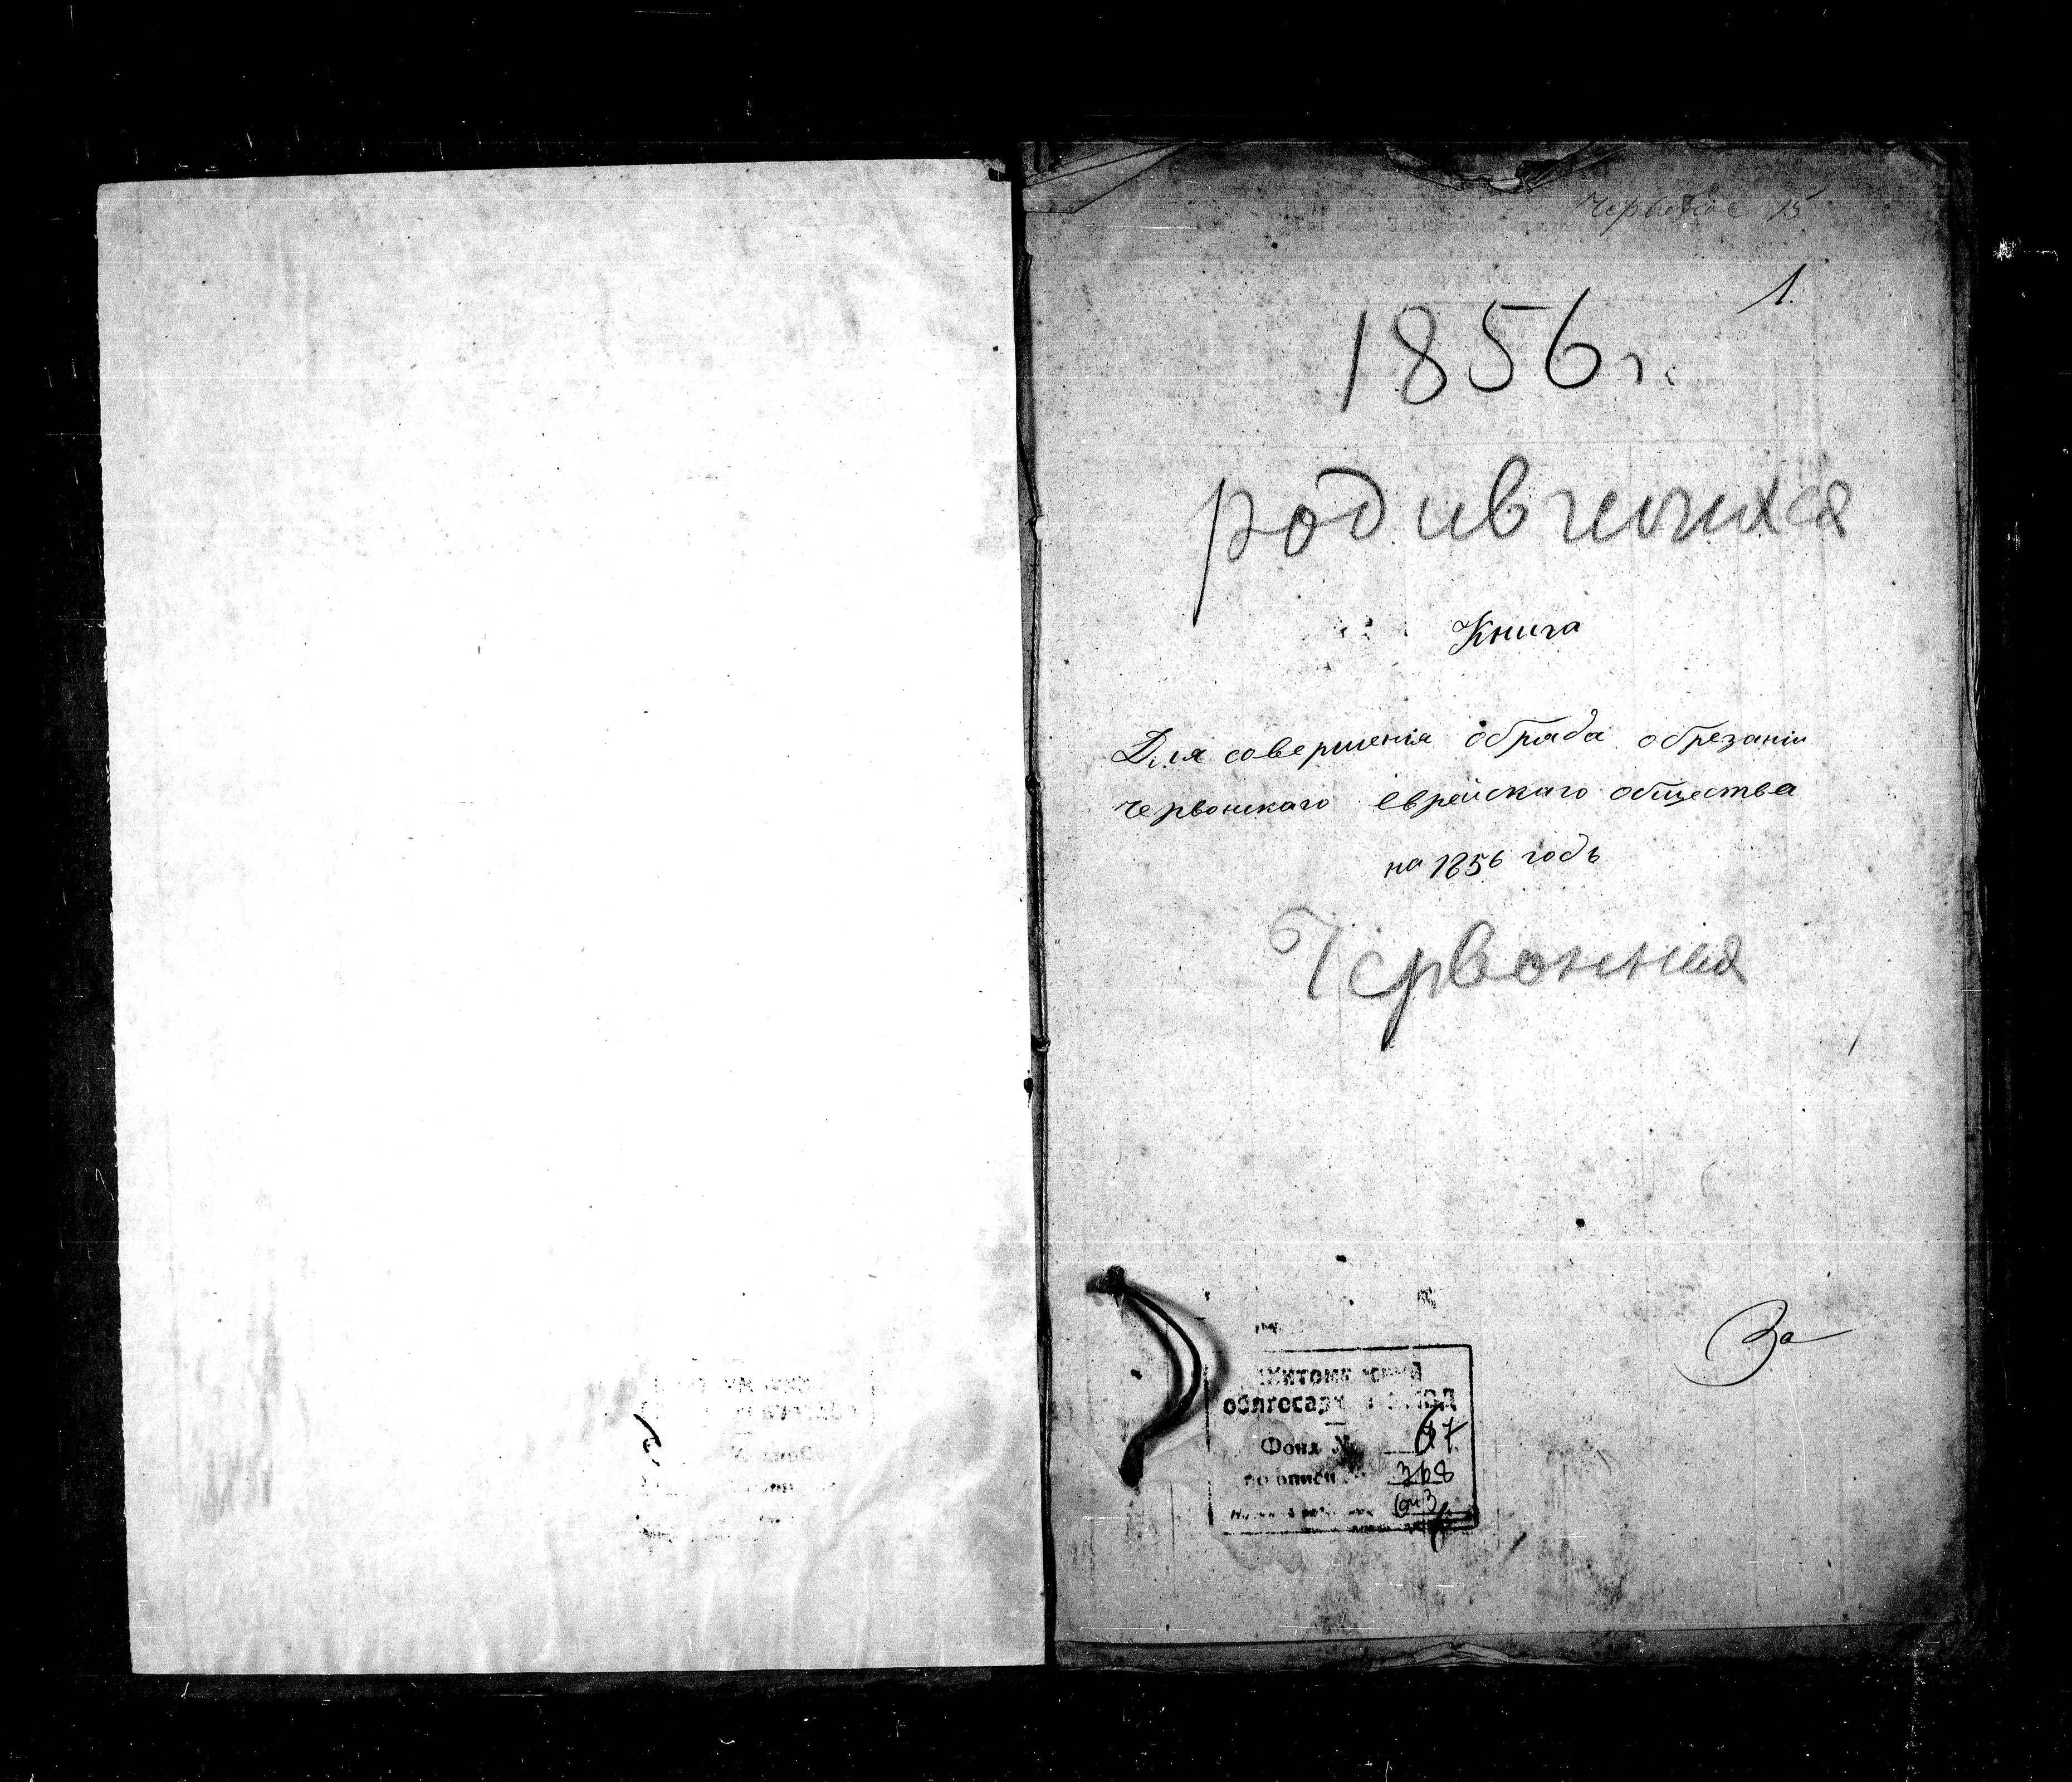 1.
1856 г.
родившихся
Книга
Для совершенія обряда обрезанія
Червонскаго еврейскаго общества
на 1856 годъ
Червонная
За
Житомирский
облгосархив
Фонд № 67
по описи 368